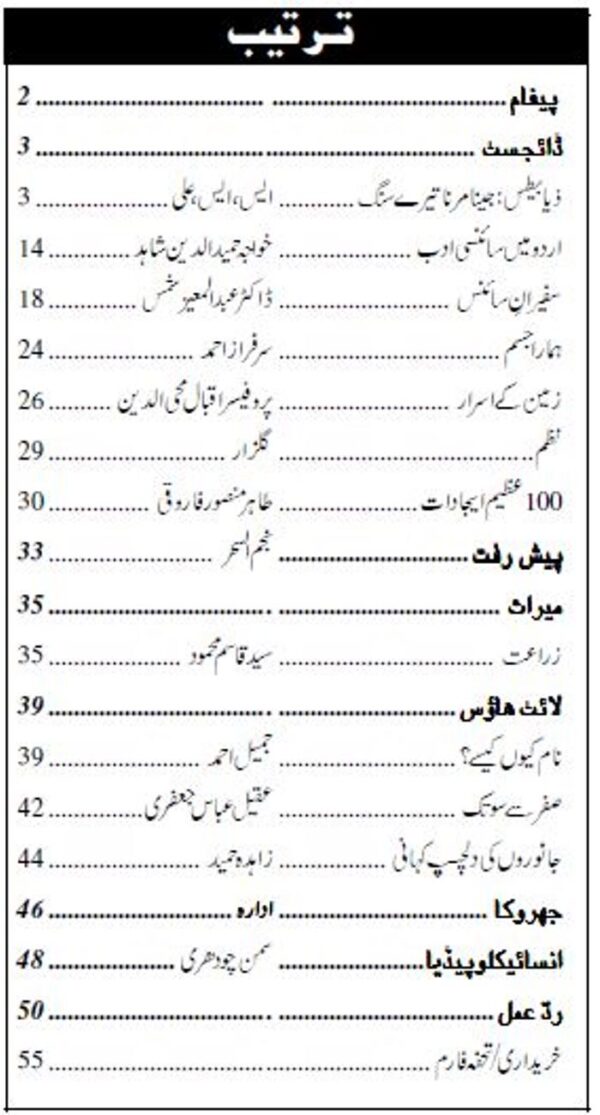 ترتیب
پیغام ........................ 2
ڈائجسٹ ........................ 3
ذیابیطس: جینا مرنا تیرے سنگ ............ ایس، ایس، علی ............ 3
اردو میں سائنسی ادب ............ خواجہ حمید الدین شاہد ............ 14
سفیرانِ سائنس ............ ڈاکٹر عبدالمعیز شمس ............ 18
ہمارا جسم ............ سرفراز احمد ............ 24
زمین کے اسرار ............ پروفیسر اقبال محی الدین ............ 26
نظم ............ گلزار ............ 29
100 عظیم ایجادات ............ طاہر منصور فاروقی ............ 30
پیش رفت ............ نجم السحر ............ 33
میراث ........................ 35
زراعت ............ سید قاسم محمود ............ 35
لائٹ ھاؤس ........................ 39
نام کیوں کیسے؟ ............ جمیل احمد ............ 39
صفر سے سو تک ............ عقیل عباس جعفری ............ 42
جانوروں کی دلچسپ کہانی ............ زاہدہ حمید ............ 44
جھروکا ............ ادارہ ............ 46
انسائیکلوپیڈیا ............ سمن چودھری ............ 48
ردّ عمل ........................ 50
خریداری/تحفہ فارم ........................ 55